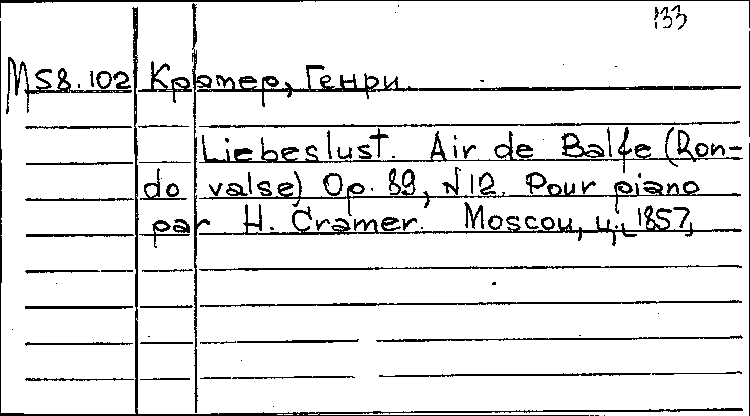 133
M58.102 Крамер, Генри.
Liebeslust. Air de Balfe (Ron-
do valse) Op. 89, №12. Pour piano
par H. Cramer. Moscou, ц. 1857,